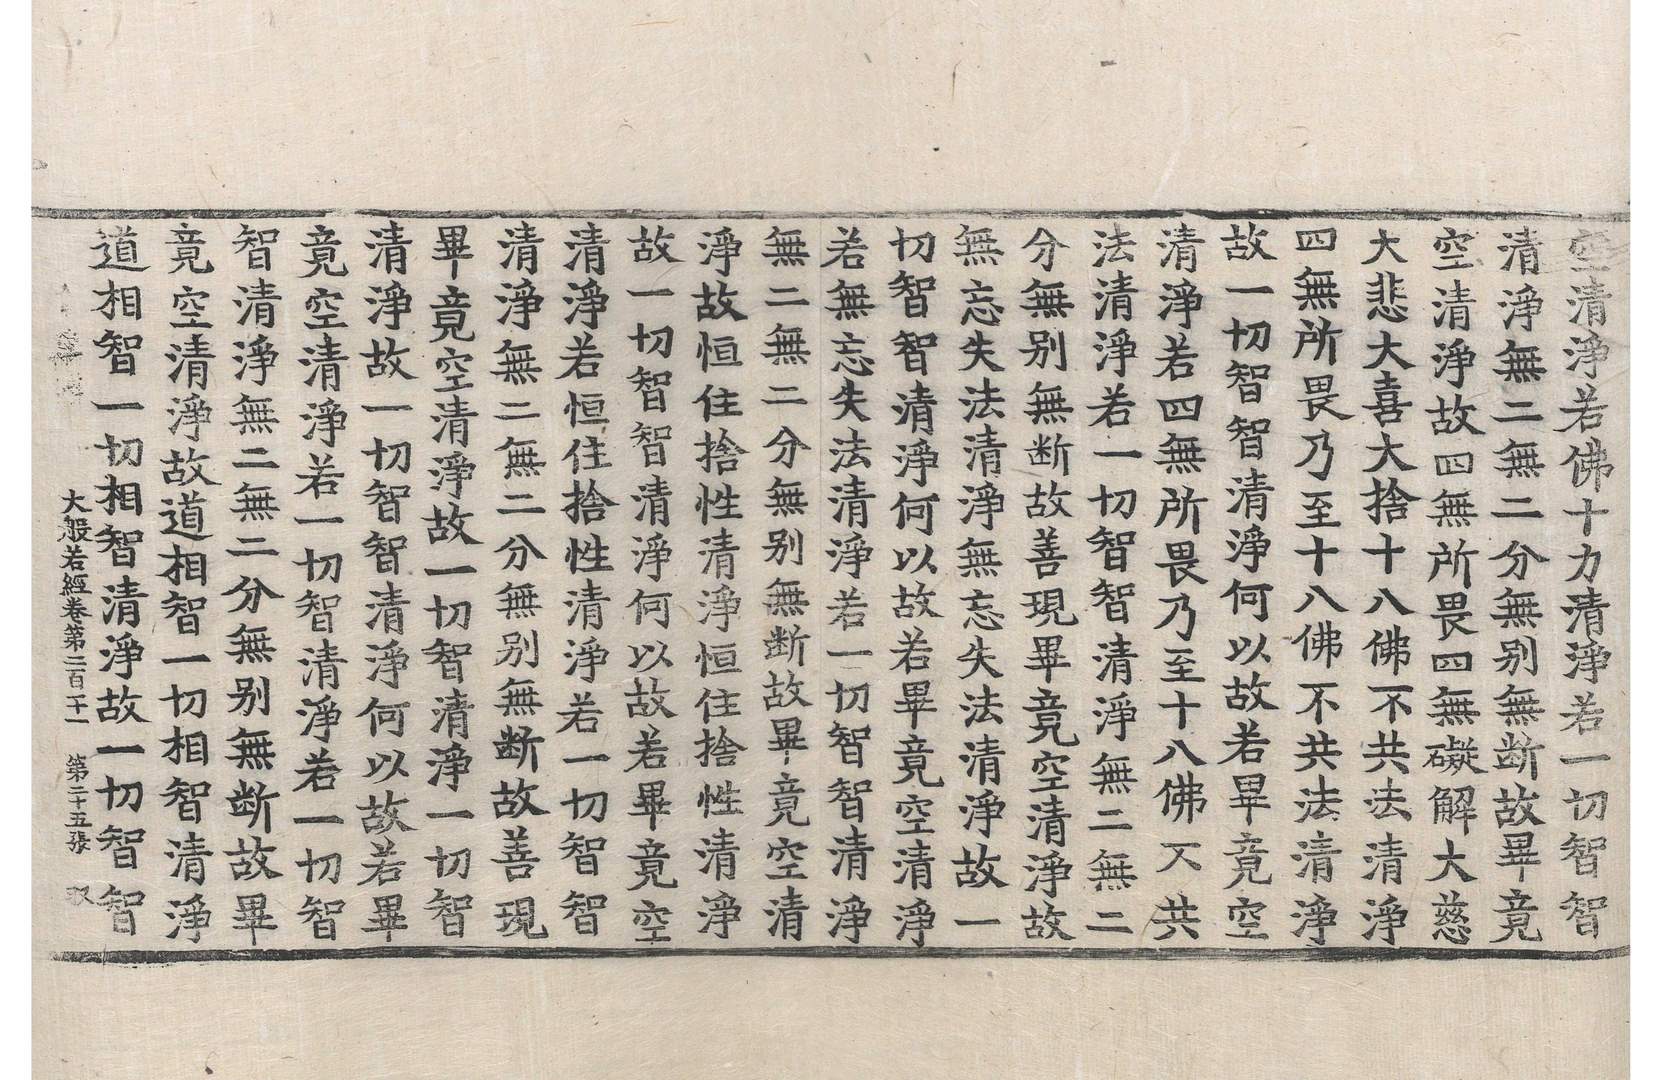 空清淨若佛十力清淨若一切智智
清淨無二無二分無別無断故畢竟
空清淨故四無所畏四無礙解大慈
大悲大喜大捨十八佛不共法清淨
四無所畏乃至十八佛不共法清淨
故一切智智清淨何以故若畢竟空
清淨若四無所畏乃至十八佛不共
法清淨若一切智智清淨無二無二
分無別無断故善現畢竟空清淨故
無忘失法清淨無忘失法清淨故一
切智智清淨何以故若畢竟空清淨
若無忘失法清淨若一切智智清淨
無二無二分無別無断故畢竟空清
淨故恒住捨性清淨恒住捨性清淨
故一切智智清淨何以故若畢竟空
清淨若恒住捨性清淨若一切智智
清淨無二無二分無別無断故善現
畢竟空清淨故一切智清淨一切智
清淨故一切智智清淨何以故若畢
竟空清淨若一切智清淨若一切智
智清淨無二無二分無別無断故畢
竟空清淨故道相智一切相智清淨
道相智一切相智清淨故一切智智
大般若經卷第二百一十一 第二十五張